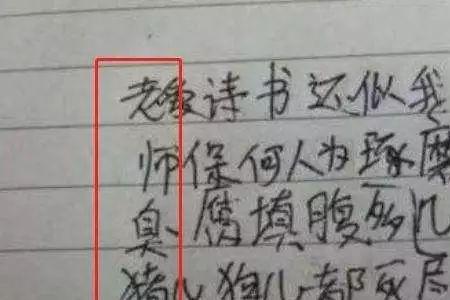 老诗书还似我
师保何人为琢磨
臭腐填腹几
猪儿狗儿都死尽